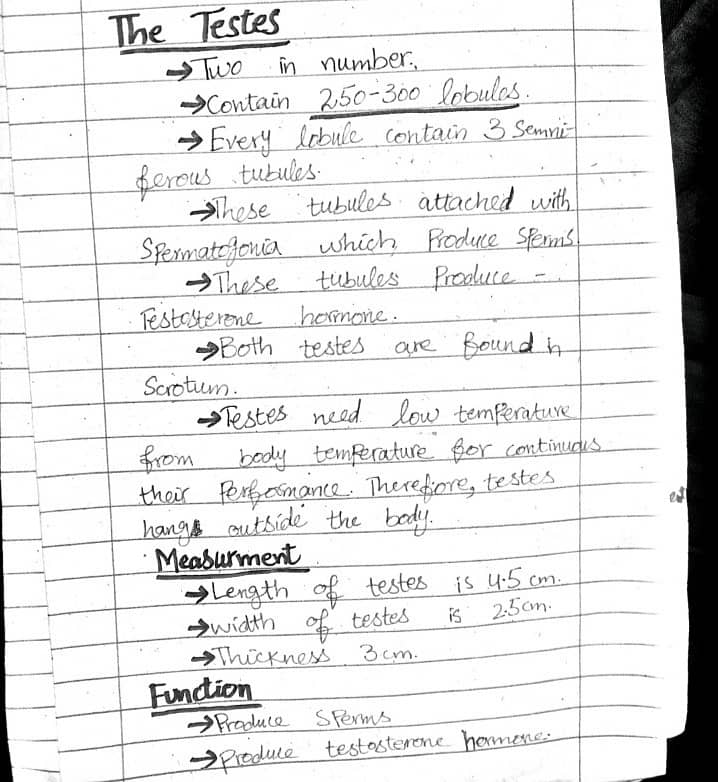 The Testes
→ Two in number.
→ Contain 250-300 lobules.
→ Every lobule contain 3 Semni-
ferous tubules.
→ These tubules attached with
Spermatogonia which Produce Sperms.
→ These tubules Produce -
Testosterone hormone.
→ Both testes are found in
Scrotum.
→ Testes need low temperature
from body temperature for continuous
their Performance. Therefore, testes
hang outside the body.
Measurment
→ Length of testes is 4.5 cm.
→ width of testes is 2.5cm.
→ Thickness 3cm.
Function
→ Produce Sperms
→ Produce testosterone hormone.